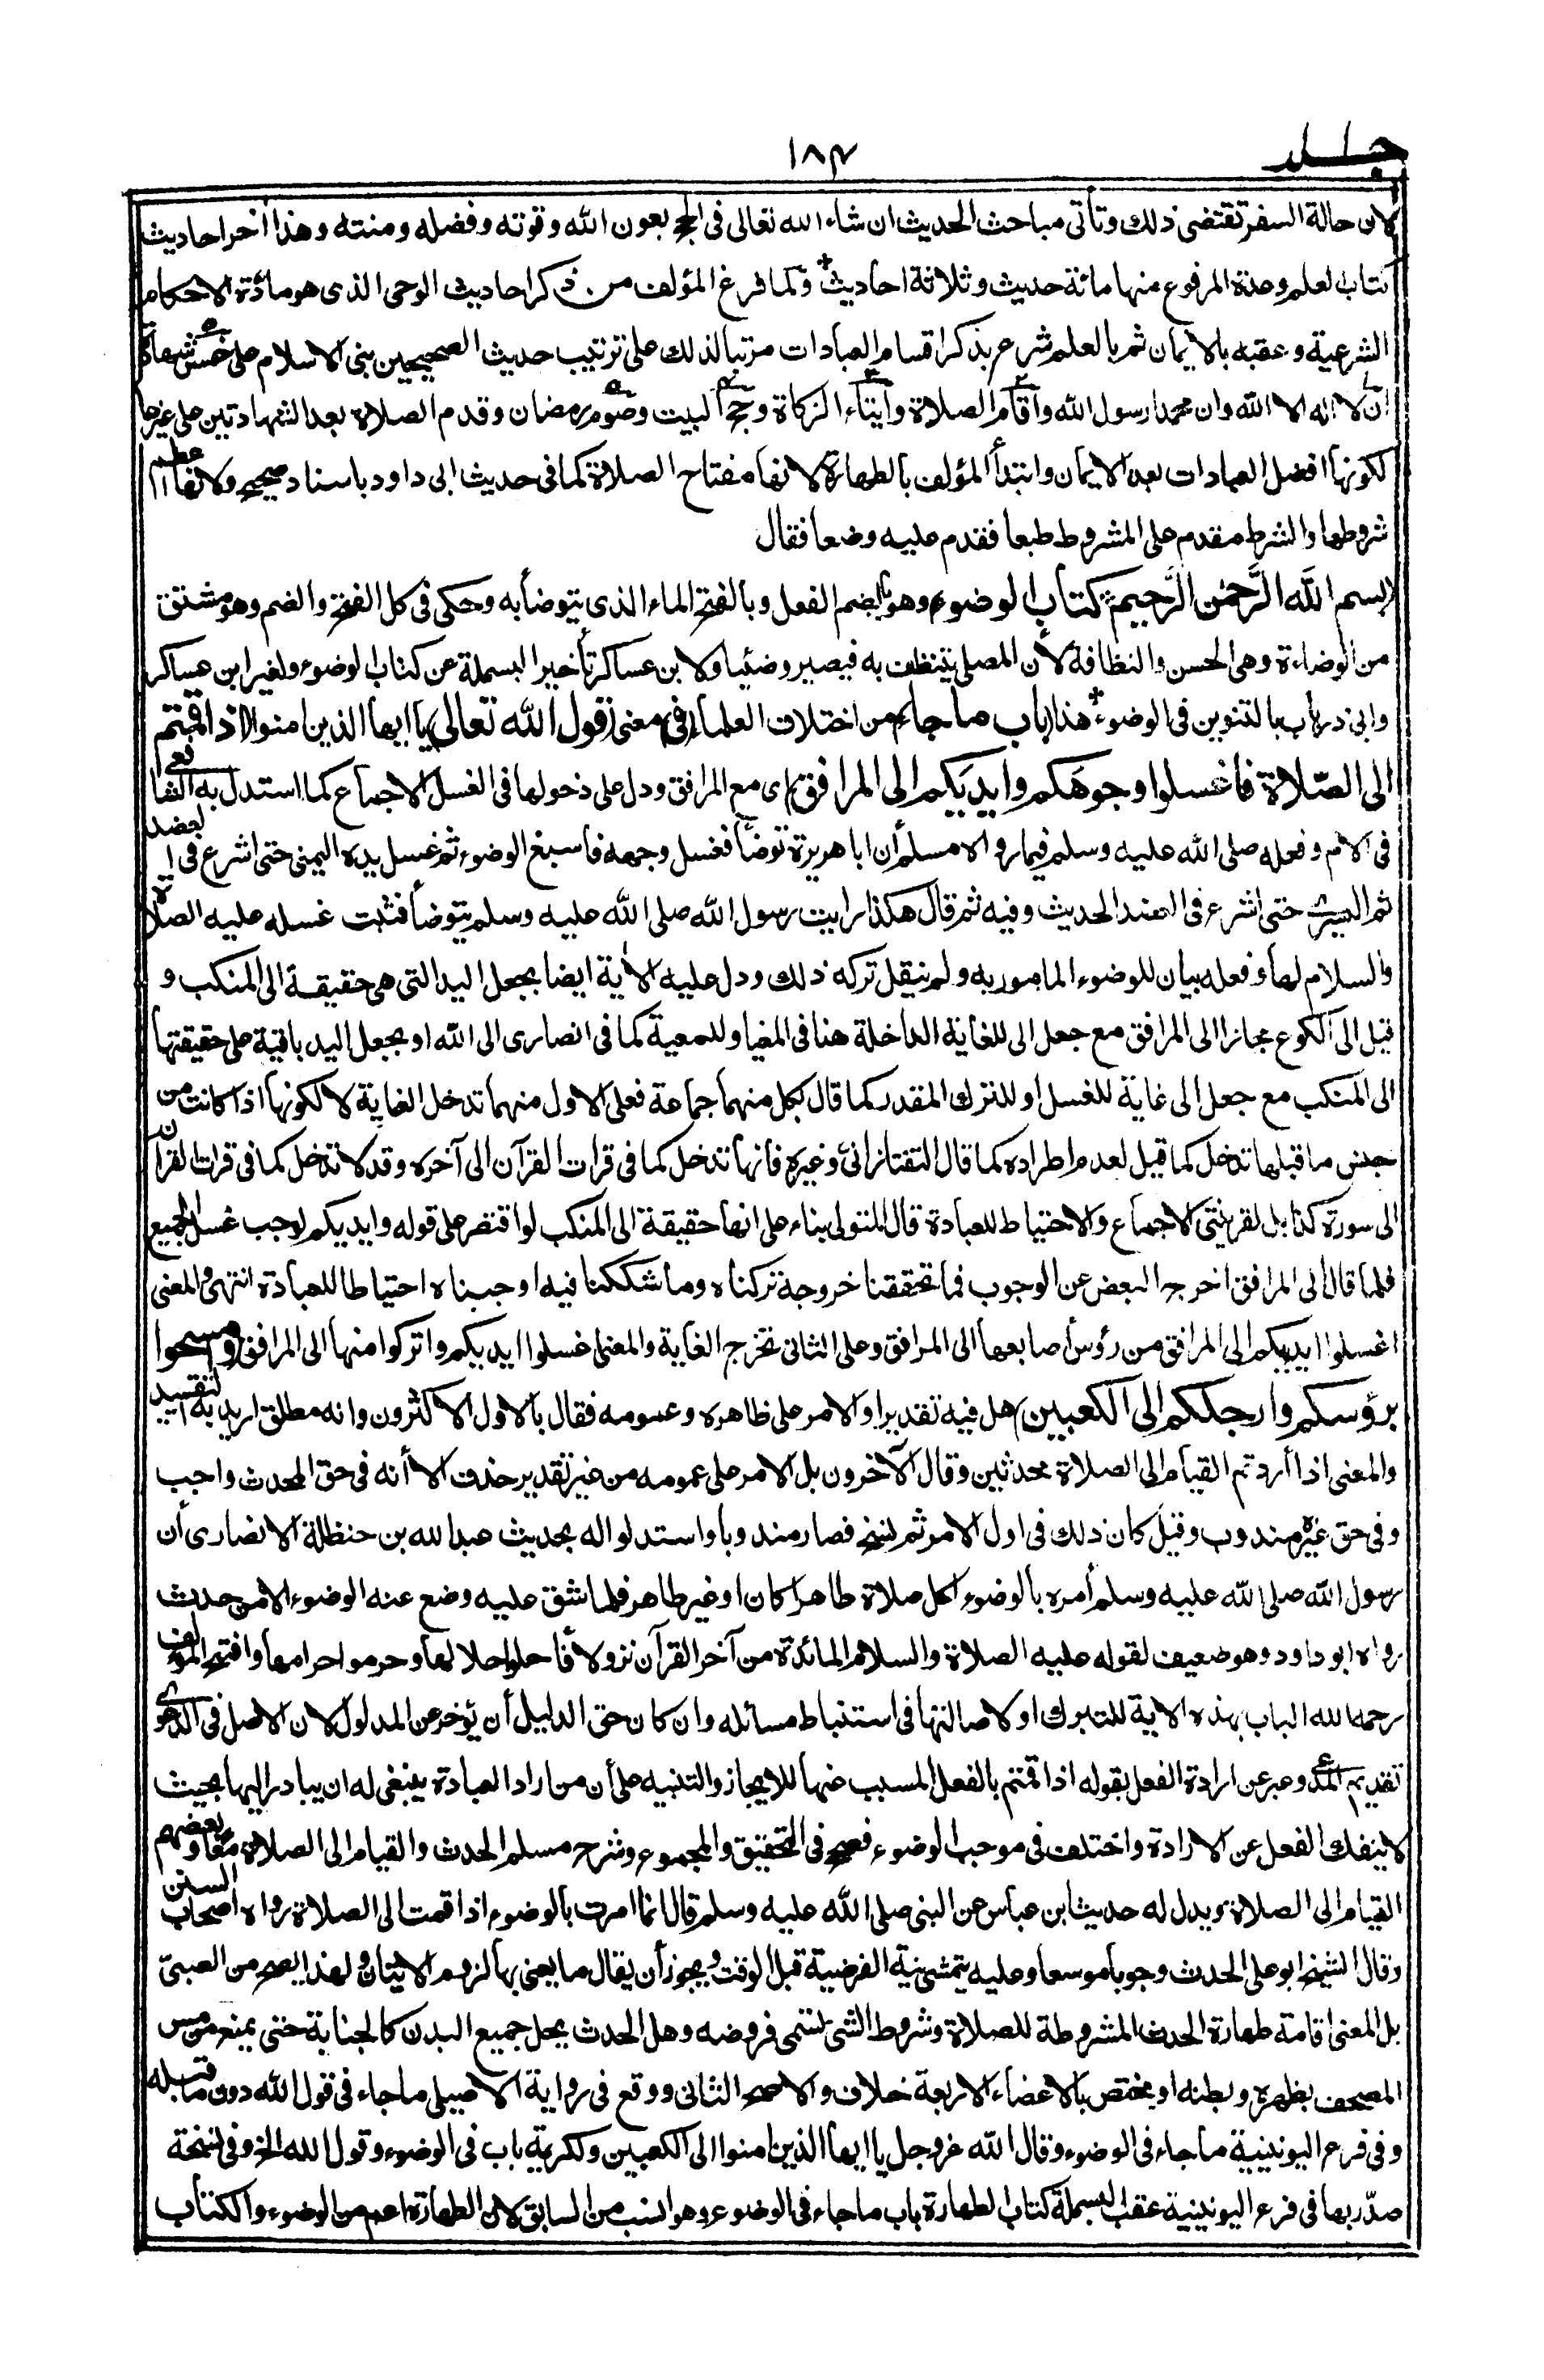 جلد
١٨٤
لان حالة السفر تقتضي ذلك وتأتي مباحث الحديث ان شاء الله تعالى في الحج بعون الله وقوته وفضله ومنته وهذا آخر احاديث
كتاب لعلم وعدة المرفوع منها مائة حديث وثلاثة احاديث ولما فرغ المؤلف من ذكر احاديث الوحى الذى هو مادة الاحكام
الشرعية وعقبه بالايمان ثم بالعلم شرع بذكر اقسام العبادات مرتبا لذلك على ترتيب حديث الصحيحين بنى الاسلام على خمس شهادة
ان لا اله الا الله وان محمدا رسول الله واقام الصلاة وايتاء الزكاة وحج البيت وصوم رمضان وقدم الصلاة بعد الشهادتين على غيرها
لكونها افضل العبادات بعد الايمان وابتدأ المؤلف بالطهارة لانها مفتاح الصلاة كما في حديث ابى داود باسناد صحيح ولانها اعظم
شروطها والشرط مقدم على المشروط طبعا فقدم عليه وضعا فقال
(بسم الله الرحمن الرحيم كتاب الوضوء) وهو بالضم الفعل وبالفتح الماء الذى يتوضأ به وحكى فى كل الفتح والضم وهو مشتق
من الوضاءة وهى الحسن والنظافة لأن المصلى يتنظف به فيصير وضيئا ولابن عساكر تأخير البسملة عن كتاب الوضوء ولغير ابن عساكر
وابى ذر باب بالتنوين فى الوضوء هذا (باب ما جاء) من اختلاف العلماء (فى) معنى (قول الله تعالى) يا ايها الذين امنوا (اذا قمتم
الى الصلاة فاغسلوا وجوهكم وايديكم الى المرافق) اى مع المرافق ودل على دخولها فى الغسل الاجماع كما استدل به الشافعى
فى الام وفعله صلى الله عليه وسلم فيما رواه مسلم أن ابا هريرة توضأ فغسل وجهه فأسبغ الوضوء ثم غسل يده اليمنى حتى اشرع فى العضد
ثم اليسرى حتى اشرع فى العضد الحديث وفيه ثم قال هكذا رايت رسول الله صلى الله عليه وسلم يتوضأ فثبت غسله عليه الصلاة
والسلام لها وفعله بيان للوضوء المامور به ولم ينقل تركه ذلك ودل عليه الآية ايضا بجعل اليد التى هى حقيقة الى المنكب و
قيل الى الكوع مجازا الى المرافق مع جعل الى للغاية الداخلة هنا فى المغيا وللمعية كما فى انصارى الى الله او بجعل اليد باقية على حقيقتها
الى المنكب مع جعل الى غاية للغسل او للترك المقدر كما قال بكل منهما جماعة فعلى الاول منهما تدخل الغاية لا لكونها اذا كانت من
جنس ما قبلها تدخل كما قيل لعدم اطراده كما قال التفتازانى وغيره فانها تدخل كما فى قرات القرآن الى آخره وقد لا تدخل كما فى قرات القرآن
الى سورة كذا بل لقرينتى الاجماع والاحتياط للعبادة قال المتولى بناء على انها حقيقة الى المنكب لو اقتصر على قوله وايديكم لوجب غسل الجميع
فلما قال الى المرافق اخرج البعض عن الوجوب فما تحققنا خروجة تركناه وما شككنا فيه اوجبناه احتياطا للعبادة انتهى والمعنى
اغسلوا ايديكم الى المرافق من رؤس أصابعها الى المرافق وعلى الثانى تخرج الغاية والمعنى اغسلوا ايديكم واتركوا منها الى المرافق (وامسحوا
برؤسكم وارجلكم الى الكعبين) هل فيه تقدير او الامر على ظاهره وعمومه فقال بالاول الاكثرون وانه مطلق اريد به التقييد
والمعنى اذا أردتم القيام الى الصلاة محدثين وقال الآخرون بل الامر على عمومه من غير تقدير حذف الا أنه فى حق المحدث واجب
وفى حق غيره مندوب وقيل كان ذلك فى اول الامر ثم نسخ فصار مندوبا واستدلوا له بحديث عبدالله بن حنظلة الانصارى أن
رسول الله صلى الله عليه وسلم أمره بالوضوء لكل صلاة طاهرا كان او غير طاهر فلما شق عليه وضع عنه الوضوء الا من حدث
رواه ابو داود وهو ضعيف لقوله عليه الصلاة والسلام المائدة من آخر القرآن نزولا فأحلوا حلالها وحرموا حرامها وافتتح المؤلف
رحمه الله الباب بهذه الاية للتبرك او لاصالتها فى استنباط مسائله وان كان حق الدليل أن يؤخر عن المدلول لان الاصل فى الدعوى
تقديم المدعى وعبر عن ارادة الفعل بقوله اذا قمتم بالفعل المسبب عنها للايجاز والتنبيه على أن من اراد العبادة ينبغى له ان يبادر اليها بحيث
لا ينفك الفعل عن الارادة واختلف فى موجب الوضوء فصحح فى التحقيق والمجموع وشرح مسلم الحدث والقيام الى الصلاة معا وبعضهم
القيام الى الصلاة ويدل له حديث ابن عباس عن النبى صلى الله عليه وسلم قال انما امرت بالوضوء اذا قمت الى الصلاة رواه أصحاب السنن
وقال الشيخ ابو على الحدث وجوبا موسعا وعليه يتمشى نية الفرضية قبل الوقت ويجوز أن يقال ما يعنى بها لزوم الاتيان ولهذا يصح من الصبى
بل المعنى اقامة طهارة الحدث المشروطة للصلاة وشروط الشى تسمى فروضه وهل الحدث يحل جميع البدن كالجنابة حتى يمنع من مس
المصحف بظهره وبطنه او يختص بالاعضاء الاربعة خلاف والاصح الثانى ووقع فى رواية الاصيلى ما جاء فى قول الله دون ما قبله
وفى فرع اليونينية ما جاء فى الوضوء وقال الله عز وجل يا ايها الذين امنوا الى الكعبين ولكريمة باب فى الوضوء وقول الله الخ وفى نسخة
صدّر بها فى فرع اليونينية عقب البسملة كتاب الطهارة باب ما جاء فى الوضوء وهو انسب من السابق لان الطهارة اعم من الوضوء والكتاب